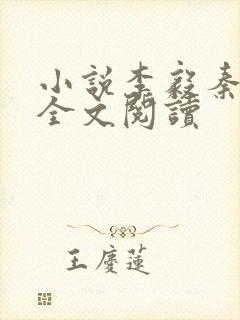 小說李毅秦
全文閱讀
王慶蓮